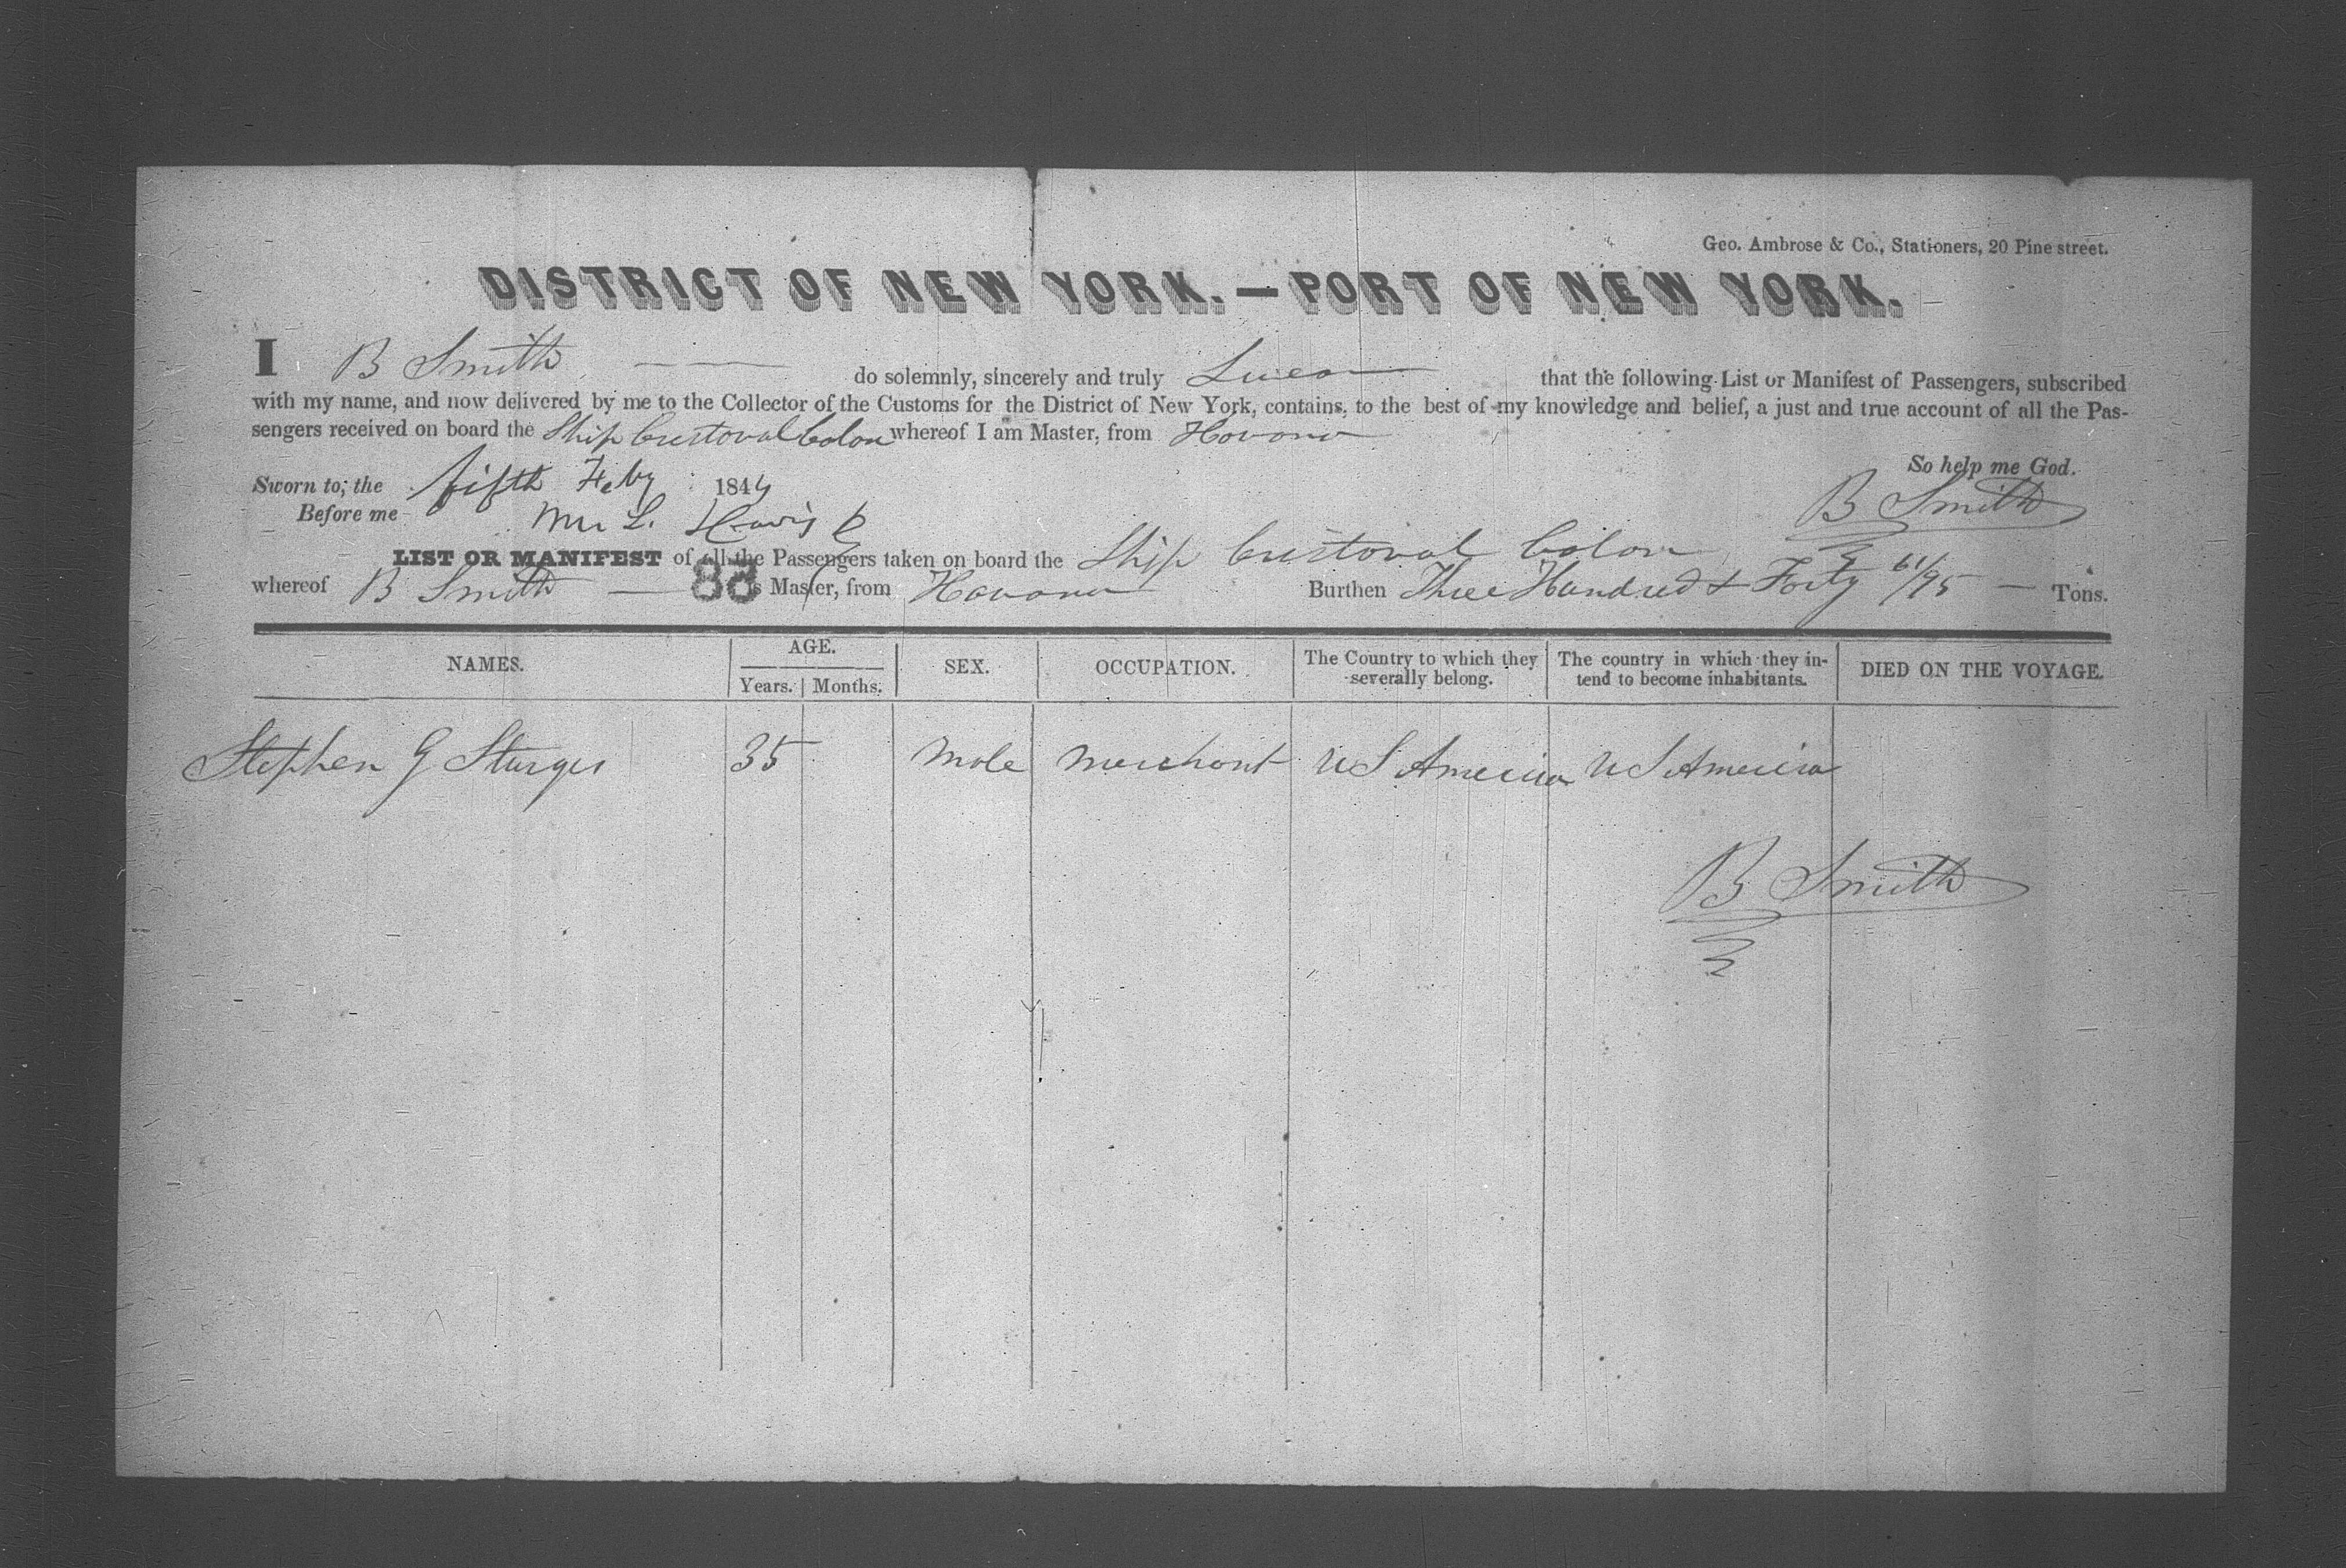 Geo. Ambrose & Co., Stationers, 20 Pine street.
DISTRICT OF NEW YORK.—PORT OF NEW YORK.
I B Smith do solemnly, sincerely and truly Swear that the following List or Manifest of Passengers, subscribed
with my name, and now delivered by me to the Collector of the Customs for the District of New York, contains, to the best of my knowledge and belief, a just and true account of all the Pas-
sengers received on board the Ship Cristoval Colon whereof I am Master, from Havana
So help me God.
Sworn to, the fifth Feby 1844
B Smith
Before me
LIST OR MANIFEST of all the Passengers taken on board the Ship Cristoval Colon
88
whereof B Smith is Master, from Havana Burthen Three Hundred & Forty 61/95 Tons.
NAMES. AGE. Years. Months. SEX. OCCUPATION. The Country to which they severally belong. The country in which they in-tend to become inhabitants. DIED ON THE VOYAGE.
Stephen G Sturges 35 Male Merchant U S America U S America
B Smith